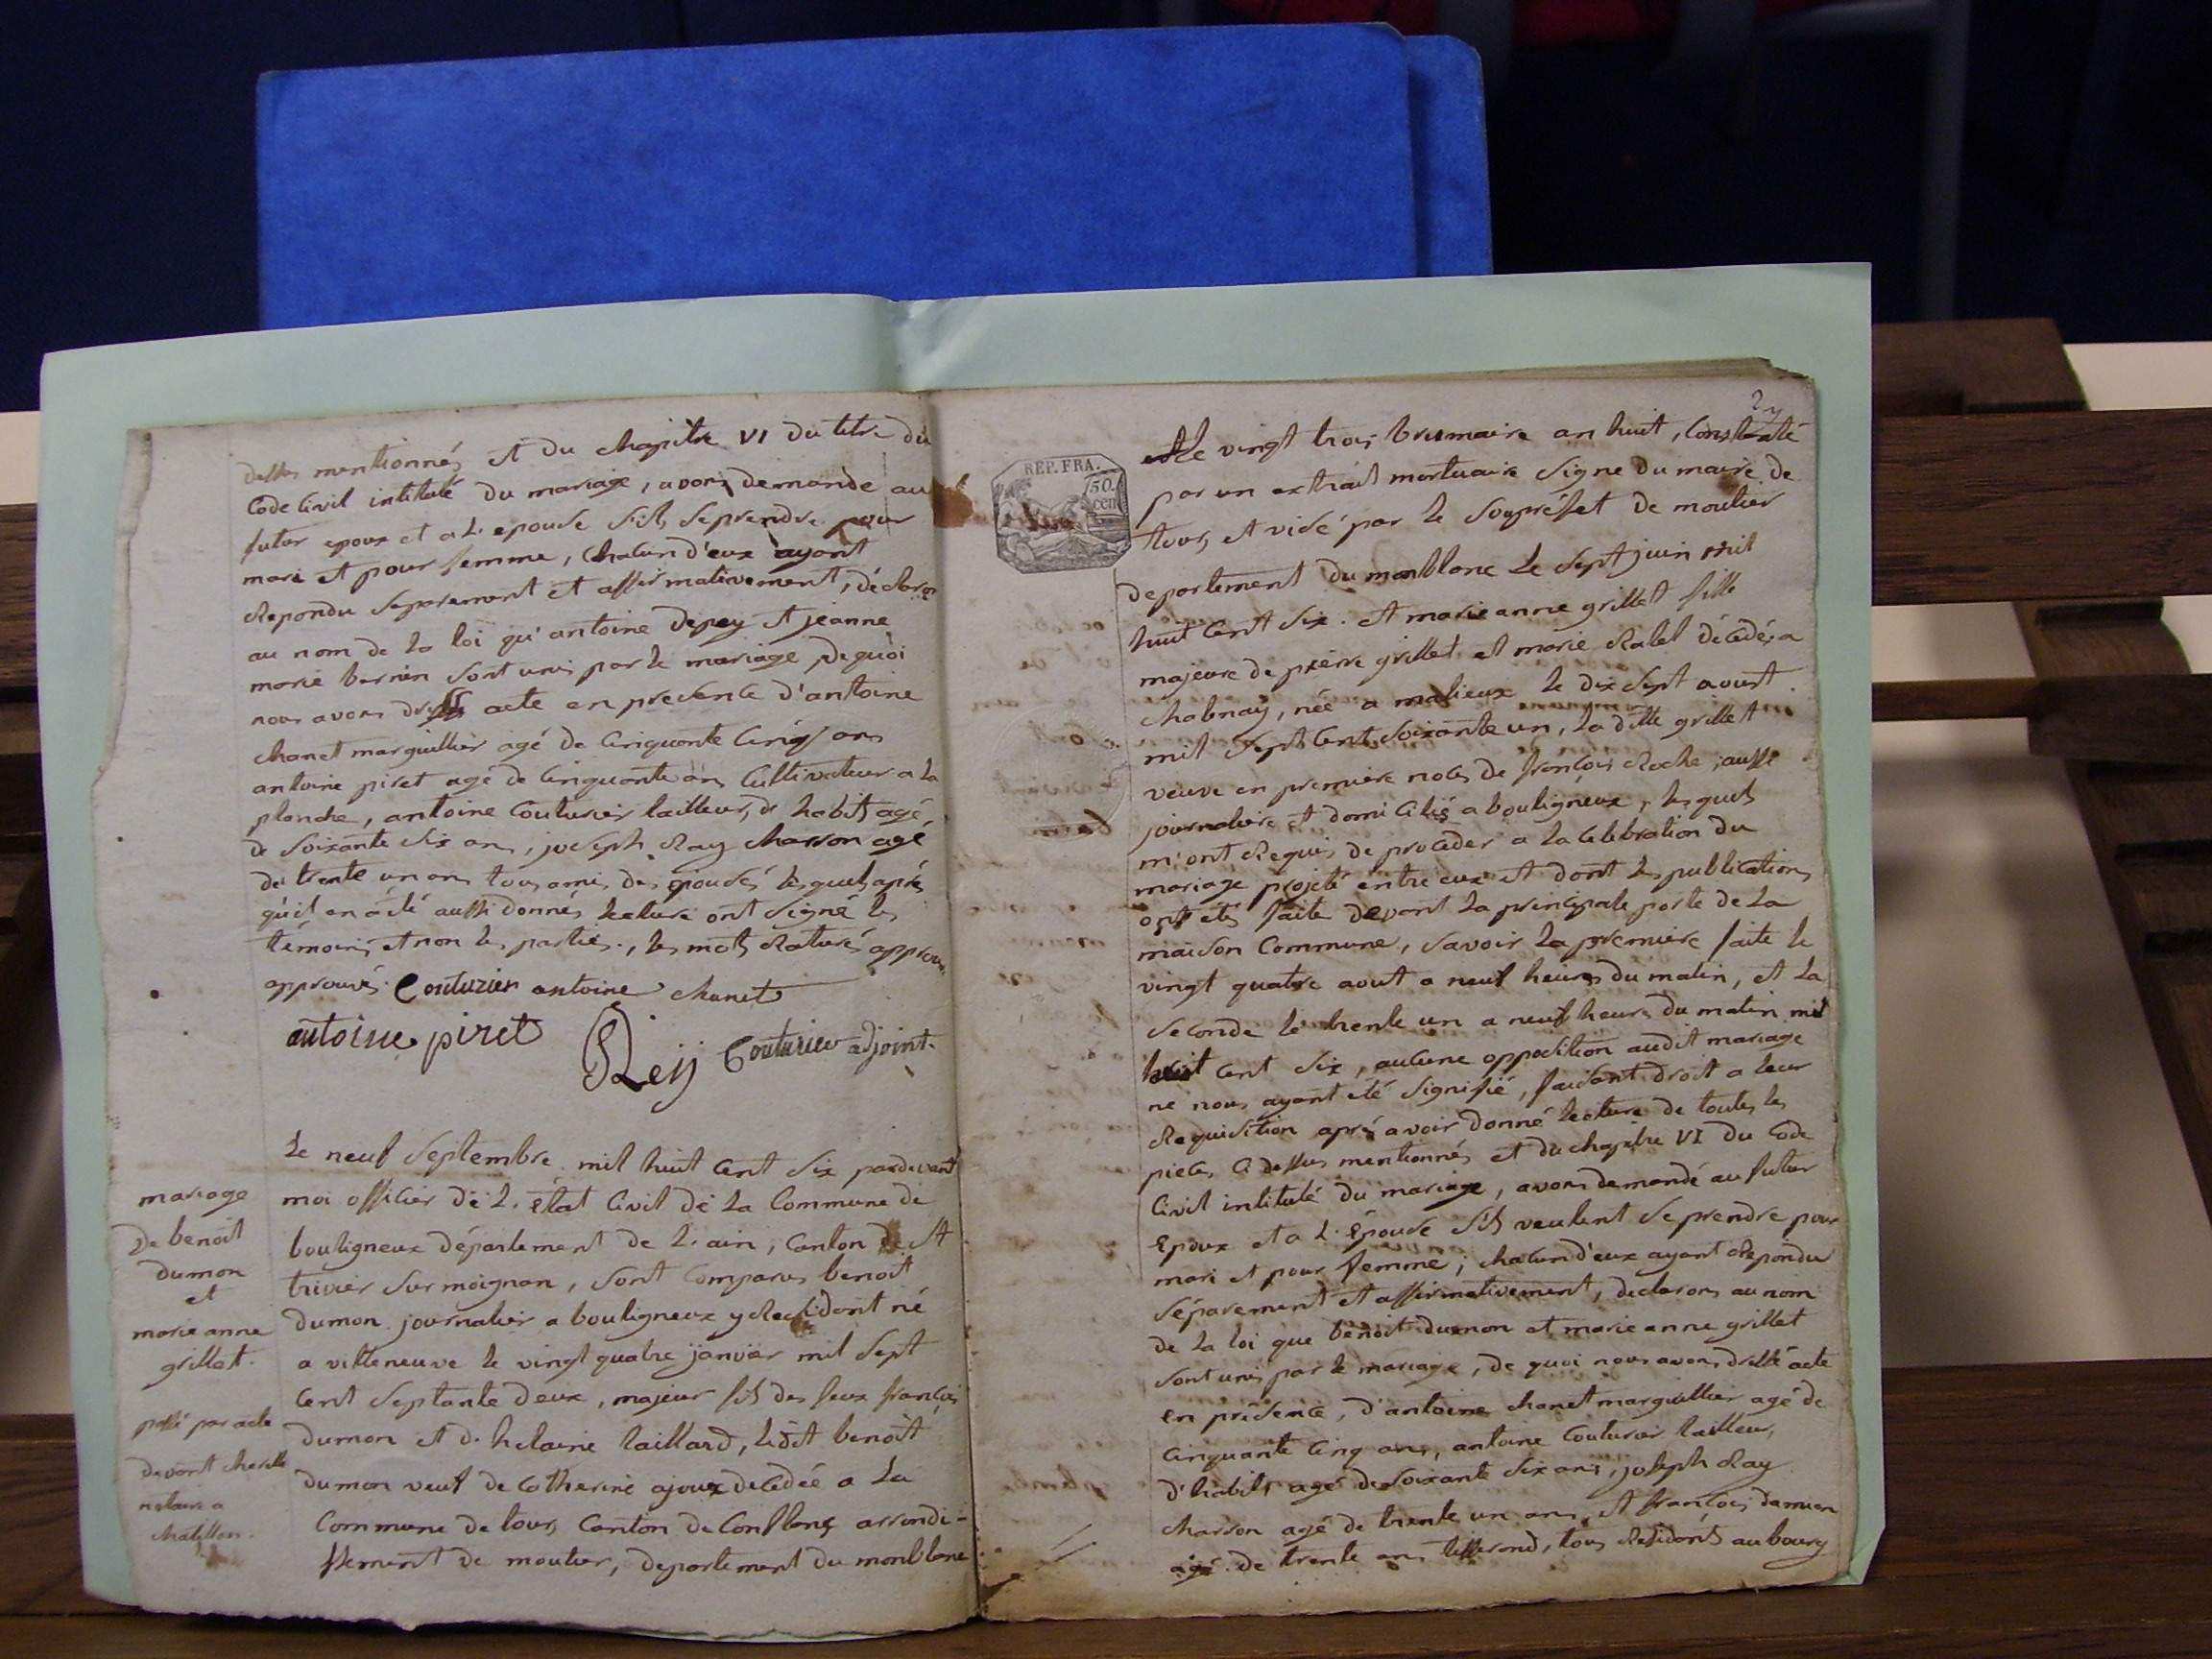 dessus mentionnés et du chapitre VI du titre du
Code Civil intitulé du mariage, avons demandé au
futur epoux et a l'epouse s'ils se prendre pour
mari et pour femme, chacun d'eux ayant
Repondu séparement et affirmativement, déclaron
au nom de la loi qu'antoine depey et jeanne
marie bernin sont unis par le mariage De quoi
nous avons dressé acte en presence d'antoine
chanet marguillier agé de Cinquante Cinq ans
antoine piret agé de Cinquante ans Cultivateur a la
planche, antoine Couturier tailleur, d'habits agé,
de soixante six ans, joseph Ray charron agé
de trente un ans tous amis des epousés lesquels après
qu'il en a été aussi donnés lecture ont signé les
témoins et non les parties., les mots Raturés
approuvés. Couturier antoine chanet
antoine piret Reÿ Couturier adjoint.
mariage
De benoit
dumon
et
marie anne
grillet.
passé par acte
devant
notaire a
chatillon.
Le neuf Septembre mil huit Cent Six pardevant
moi officier de l'état Civil de la Commune de
bouligneux département de l'ain, Canton de st
trivier sur moignan, sont Comparus benoit
dumon journalier a bouligneux y Residant né
a villeneuve le vingt quatre janvier mil Sept
Cent Septante deux, majeur fils des feux françois
dumon et d'helaine taillard, ledit benoit
dumon veuf de Catherine ajoux décédée a la
Commune de tours Canton de Conflans arrondi-
ssement de moutier, departement du montblanc
27
REP. FRA.
50
cen
Le vingt trois brumaire an huit, Constaté
par un extrait mortuaire Signe du maire de
tours, et visé par le souspréfet de moutier
departement du montblanc le Sept juin mil
huit Cent Six. et marie anne grillet fille
majeure de pierre grillet et marie Ralet décédés a
chalenay, née a malieux le dix Sept aoust
mil Sept Cent Soixante un, la ditte grillet
veuve en premiere noces de françois Roche, aussi
journaliere et domiciliée a bouligneux, lesquels
m'ont Requis de proceder a la Celebration du
mariage projeté entre eux et dont les publications
ont etés faite devant la principale porte de la
maison Commune, savoir la premiere faite le
vingt quatre aout a neuf heures du matin, et la
seconde le trente un a neuf heures du matin mil
huit Cent Six, aucune opposition audit mariage
ne nous ayant été signifié, faisant droit a leur
Requisition après avoir donné lecture de toutes les
pieces Ci dessus mentionnés et du chapitre VI du Code
Civil intitulé du mariage, avons demandé au futur
Epoux et a l'Epouse s'ils veulent se prendre pour
mari et pour femme; chacun d'eux ayant Repondu
séparement et affirmativement, declarons au nom
de la loi que benoit dumon et marie anne grillet
sont unis par le mariage, de quoi nous avons dressé acte
en présence, d'antoine chanet marguillier agé de
Cinquante Cinq ans, antoine Couturier tailleur,
d'habits agé de Soixante Six ans, joseph Ray
charron agé de trente un ans, et françois damien
agé de trente ans tisserand, tous Residants au bourg